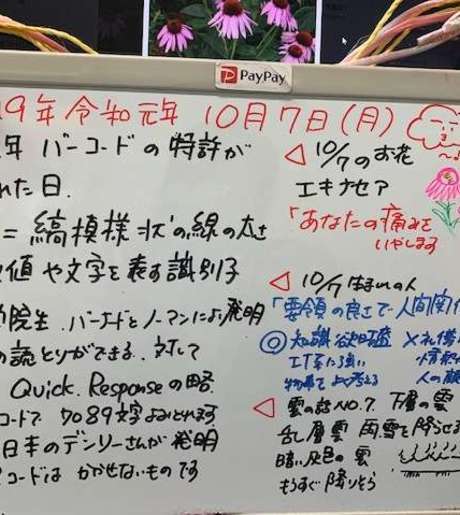 PayPay
19年 令和元年 10月7日(月)
年 バーコードの特許が
れた日.
= 縞模様状の線の太さ
値や文字を表す識別子
院生.バーナードとノーマンにより発明
の読とりができる.対して
Quick.Responseの略
コードで 7089文字よみとれます
日本のデンソーさんが発明
コードは かかせないものです
◁ 10/7のお花
エキナセア
「あなたの痛みを
いやします
◁ 10/7生まれの人
「要領の良さで人間関
◎ 知識欲旺盛
IT系に強い
よく考える
人の
◁ 雲の話NO.7. 下層の雲
乱層雲 雨,雪を降らせる
暗い灰色の雲
もうすぐ降りそう